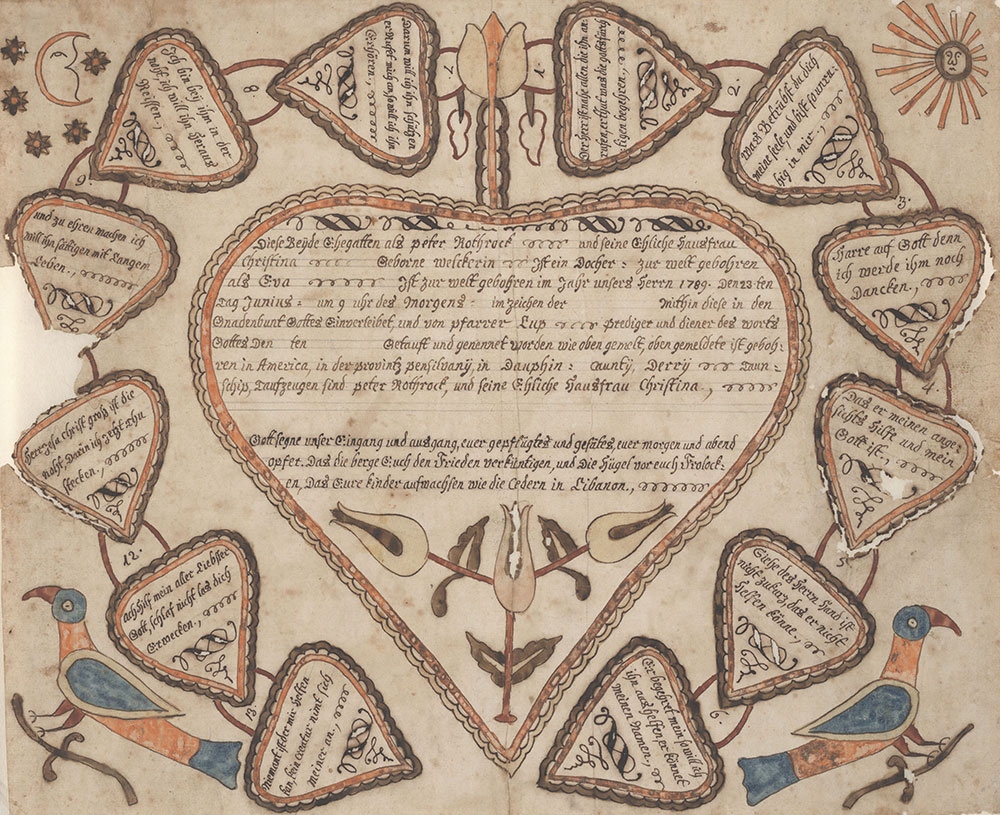 Diese Beyde Ehegatten als peter Rothrock und seine Ehliche Hausfrau
Christina Geborne Welckerin Ist ein Docher: zur welt gebohren
als Eva Ist zur welt gebohren im Jahr unsers Herrn 1789. Den 23 ten
Tag Junius: um 9 uhr des Morgens: im zeichen der Mithin diese in den
Gnadenbunt Gottes Einverleibet, und von pfarrer Lup prediger und diener des worts
Gottes Den ten Getauft und genennet worden wie oben gemelt, oben gemeldete ist geboh=
ren in America, in der provintz pensilvanÿ, in Dauphin: Caunty, Derrÿ Taun=
schip, Taufzeugen sind peter Rothrock, und seine Ehliche Hausfrau Christina.,
Gott segne unser Eingang und ausgang, euer gepflügtes und gesätes, euer morgen und abend
opfer. Das die berge Euch den Frieden verküntigen, und Die Hügel vor euch Frolock=
en, Das Eure kinder aufwachsen wie die Cedern in Libanon.,
1.
Der herr ist nahe allen die ihn an=
rufen, er thut was die gottsfürch
tigen begehren.,
2.
Was Betrübst du dich
meine seele, und bist so unru=
hig in mir.,
3.
Harre auf Gott denn
ich werde ihm noch
Dancken.,
4.
Das er meinen ange=
sichts Hilft und mein
Gott ist.,
5.
Siehe des Herrn Hand ist
nicht zu kurz, das er nicht
Helffen könne.,
6.
Er begehret mein so will ich
ihn aushelffen er kennet
meinen Namen.,
7.
Darum will ich ihn schützen
er Rufet mich an, so will ich ihn
Erhören.,
8
Ich bin beÿ ihm in der
noth, ich will ihn Heraus
Reissen.,
9.
und zu ehren machen ich
will ihn sättigen mit Langem
Leben.,
Herr Jesu Christ groß ist die
noht. Darin ich jetzt thu
stecken.,
12.
ach hilf mein aller Liebster
Gott, schlef nicht las dich
Erwecken.,
13.
Niemant ist der mir Helffen
kan, kein Creatur nimt sich
meiner an.,